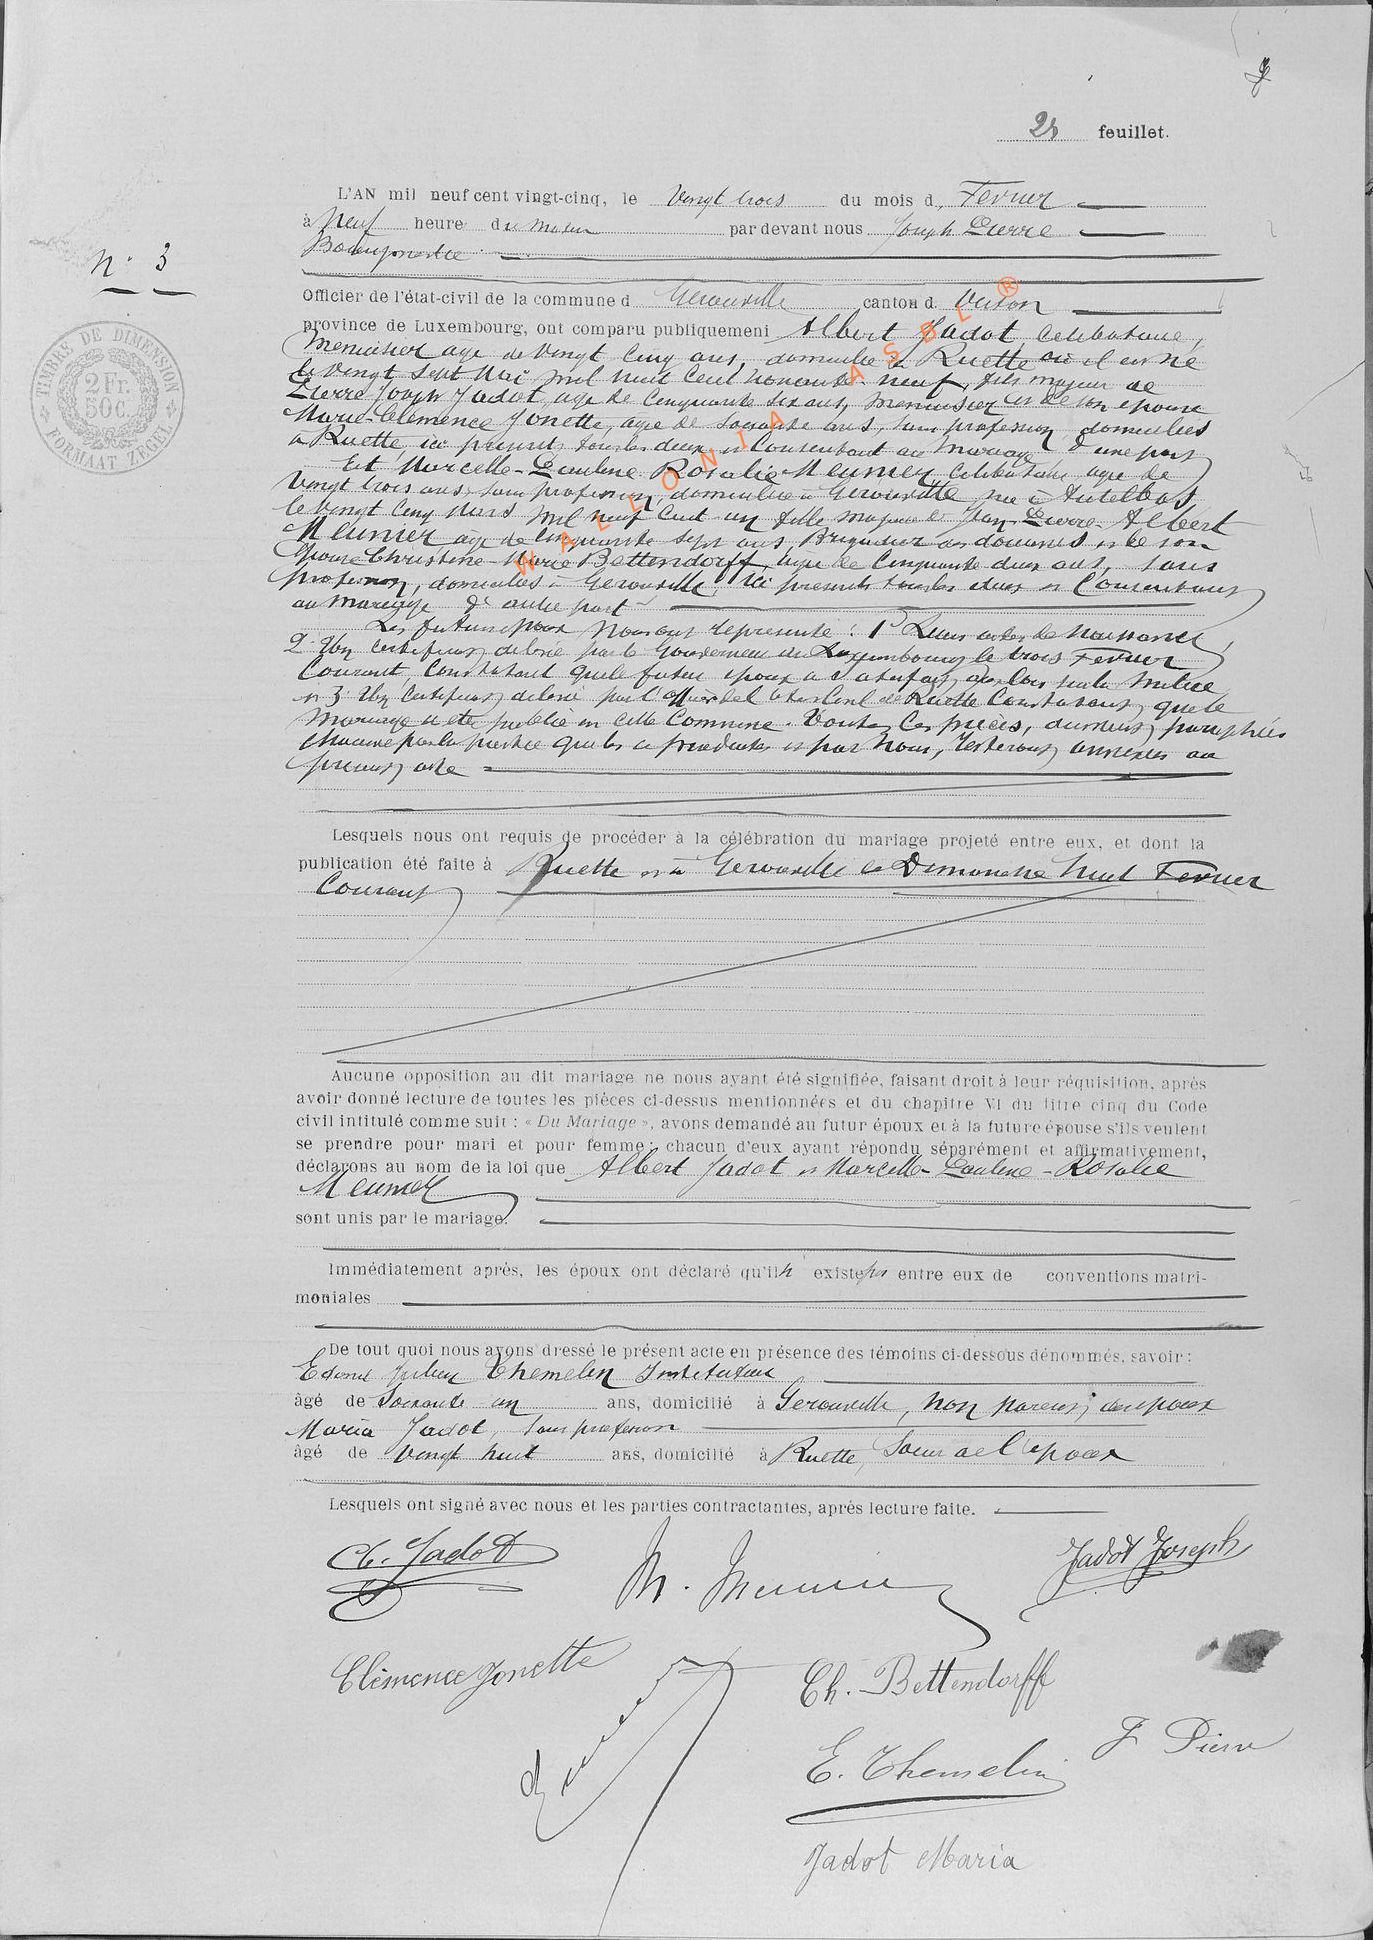 2e feuillet.
L'AN mil neuf cent vingt-cinq, le Vingt trois du mois d, Fevrier
à Neuf heure du matin par devant nous Joseph Pierre
Bourgmestre
N° 3
Officier de l'état-civil de la commune d Gerouville canton d. Virton
province de Luxembourg, ont comparu publiquement Albert Jadot, Celibataire,
TIMBRE DE DIMENSION
2 Fr. 50 C.
FORMAAT ZEGEL
Menuisier age de Vingt Cinq ans, domicilié a Ruette où il est né
le Vingt Sept Mai mil huit Cent nonante neuf, fils majeur de
Pierre Joseph Jadot age de Cinquante Six ans, Menuisier et de son epouse
Marie-Clemence Jonette, agée de Soixante ans, sans profession, domiciliés
a Ruette, ici présents tous les deux et Consentant au Mariage d'une part
Et Marcelle-Pauline Rosalie Meunier Celibataire agée de
Vingt trois ans, sans profession, domiciliée a Gerouville née à Autelbas
le Vingt Cinq Mars Mil neuf Cent un fille majeure de Jean-Pierre-Albert
Meunier age de Cinquante Sept ans, Brigadier des douanes et de son
Epouse Christine-Marie Bettendorff, agée de Cinquante deux ans, sans
profession, domiciliés à Gerouville, Ici presents tous les deux et Consentants
au Mariage d'autre part
Les futurs epoux Nous ont représenté : 1° Leurs actes de Naissance,
2° Un Certificat délivré par le Gouverneur du Luxembourg le trois Fevrier
Courant, Constatant que le futur epoux a satisfait aux lois sur la Milice
et 3° Un Certificat délivré par l'officier de l'état Civil de Ruette Constatant que le
Mariage a été publié en cette Commune. Toutes Ces pièces, dument paraphées
chacune par la partie qui les a produites et par Nous, resteront annexées au
présent acte
Lesquels nous ont requis de procéder à la célébration du mariage projeté entre eux, et dont la
publication été faite à Ruette et à Gerouville le Dimanche huit Fevrier
Courant
Aucune opposition au dit mariage ne nous ayant été signifiée, faisant droit à leur réquisition, après
avoir donné lecture de toutes les pièces ci-dessus mentionnées et du chapitre VI du titre cinq du Code
civil intitulé comme suit : « Du Mariage », avons demandé au futur époux et à la future épouse s'ils veulent
se prendre pour mari et pour femme ; chacun d'eux ayant répondu séparément et affirmativement,
déclarons au nom de la loi que Albert Jadot et Marcelle-Pauline-Rosalie
Meunier
sont unis par le mariage.
Immédiatement après, les époux ont déclaré qu'il n existe pas entre eux de conventions matri-
moniales
De tout quoi nous avons dressé le présent acte en présence des témoins ci-dessous dénommés, savoir :
Themelin Instituteur
âgé de Soixante un ans, domicilié à Gerouville, non parent des epoux
Maria Jadot, sans profession
âgé de Vingt huit ans, domicilié à Ruette, Soeur de l'epoux
Lesquels ont signé avec nous et les parties contractantes, après lecture faite.
A. Jadot
M. Meunier
Jadot Joseph
Clémence Jonette
Ch. Bettendorff
J Pierre
E. Themelin
Jadot Maria
WALLONIA ASBL ®